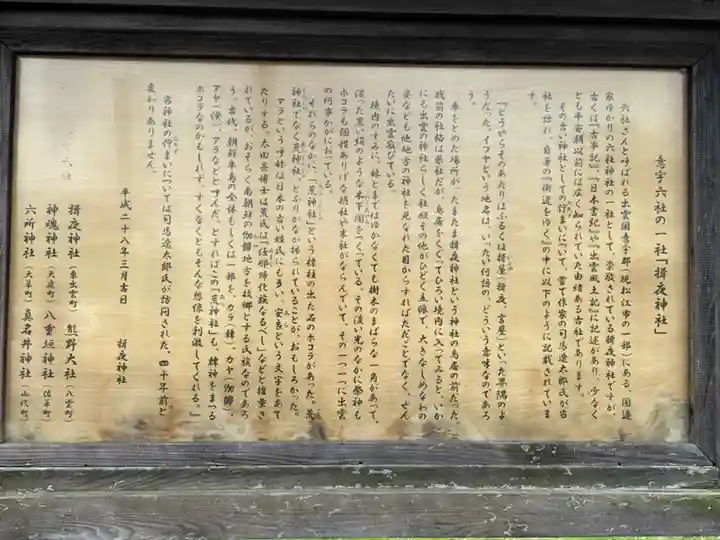 意宇六社の一社「揖夜神社」
六社さんと呼ばれる出雲国意宇郡(現松江市の一部)にある、国造
家ゆかりの六社神社の一社として、崇敬されている揖夜神社ですが、
古くは『古事記』『日本書紀』や『出雲風土記』に記述があり、少なく
とも平安朝以前には広く知られていた由緒ある古社であります。
その古い神社としての佇まいについて、嘗て作家の司馬遼太郎氏が当
社を訪れ、自著の『街道をゆく』の中に以下のように記載されていま
す。
『どうやらそのあたりはふるくは揖屋(揖夜、言屋)といった界隈のよ
うだった。イフヤという地名は、いったい何語の、どういう意味なのであろ
う。
車をとめた場所が、たまたま揖夜神社という神社の鳥居の前だった。
戦前の社格は県社だが、鳥居をくぐってひろい境内に入ってみると、いか
にも出雲の神社らしく社殿その他がひどく立派で、大きなしめなわの
姿なども他地方の神社を見なれた目からすればただごとでなく、ぜん
たいに出雲寂びている。
境内のすみに、林とまではゆかなくても樹木のまばらな一角があって、
湿った黒い絹のような木下闇をつくっている。その淡い光のなかに祭神も
ホコラも個性ありげな摂社や末社がならんでいて、その一つ一つに出雲
の何事かがにおっている。
それらのなかに、「荒神社」という標柱の出た石のホコラがあった。荒
神社でなく荒神社、とふりがなが振られていることが、おもしろかった。
アラという呼称は日本の古い姓氏にも多い、安良という文字をあて
たりする。太田亮博士は荒氏は「任那帰化族なるべし」などと推量さ
れているが、おそらく南朝鮮の伽羅地方を故郷とする氏族なのであろ
う。古代、朝鮮半島の全体もしくは一部を、カラ(韓)、カヤ(伽羅)、
アヤ(漢)、アラなどとよんだ。とすればこの「荒神社」も、韓神をまつる
ホコラなのかもしれず、すくなくともそんな想像を刺激してくれる。』
当神社の佇まいについては司馬遼太郎氏が訪問された、四十年前と
変わりありません。
平成二十八年三月吉日
揖夜神社
六社
揖夜神社(東出雲町) 熊野大社(八雲町)
神魂神社(大庭町) 八重垣神社(佐草町)
六所神社(大草町) 真名井神社(山代町)